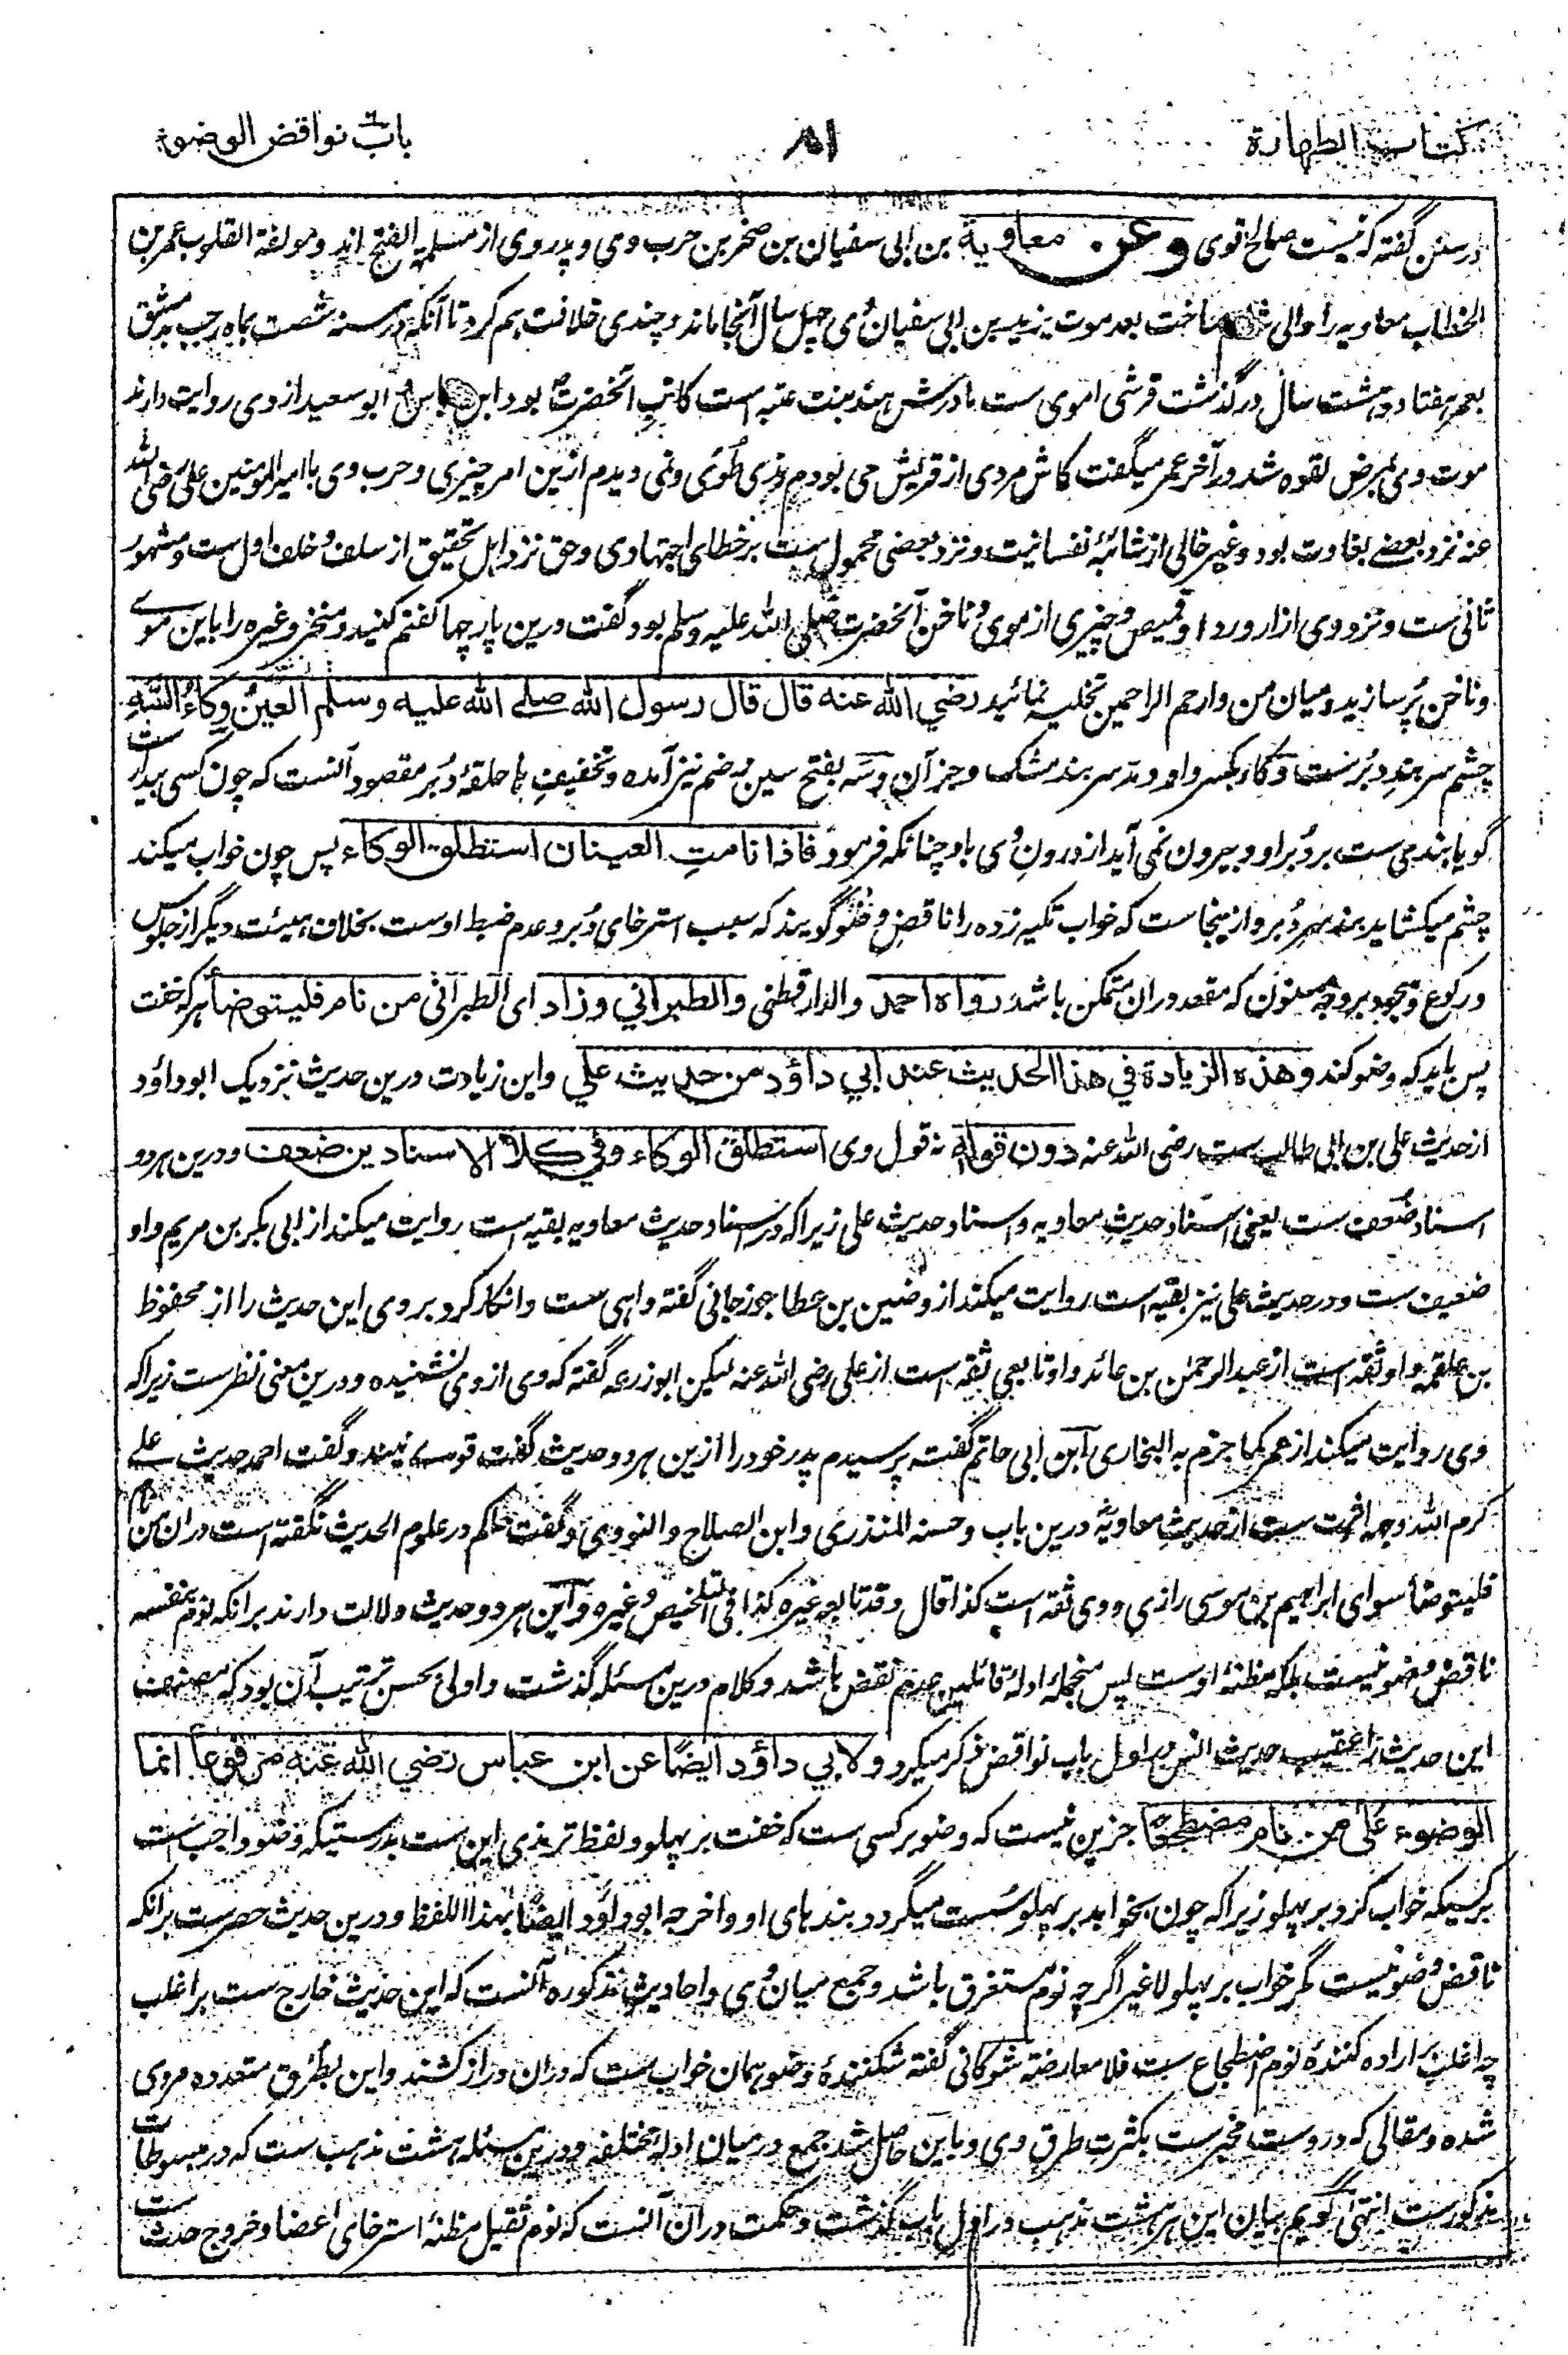 كتاب الطهارة
۸۱
باب نواقض الوضوء
در سنن گفته که نیست صالح قوی وعن معاوية بن ابی سفیان بن صخر بن حرب و می و پدر وی از مسلمیة الفتح اند و مولفة القلوب عمر بن
الخطاب معاویه را والی شام ساخت بعد موت یزید بن ابی سفیان وی چهل سال آنجا ماند و چندی خلافت هم کرد تا آنکه در سنه شصت بماه رجب بدمشق
بعمر هفتاد و هشت سال در گذشت قرشی اموی ست مادرش هند بنت عتبه است کاتب آنحضرت بود ابن عباس ابو سعید از وی روایت دارند
موت وی بمرض لقوه شد در آخر عمر میگفت کاش مردی از قریش می بودم بذی طوی و نمی دیدم ازین امر چیزی و حرب وی با امیر المومنین علی رضی الله
عنه نزد بعضے بغاوت بود و غیر خالی از شائبهٔ نفسانیت و نزد بعضی محمول ست بر خطای اجتهادی و حق نزد اهل تحقیق از سلف و خلف اول ست و مشهور
ثانی ست و نزد وی ازار و ردا و قمیص و چیزی از موی و ناخن آنحضرت صلی الله علیه و سلم بود گفت درین پارچها کفنم کنید و منخر و غیره را باین موے
و ناخن پُر سازید و میان من و ارحم الراحمین تخلیه نمائید رضي الله عنه قال قال رسول الله صلے الله عليه وسلم العين وكاء السه
چشم سر بندِ دبرست وکاء بکسر واو و مد سر بند مشک و جز آن و سه بفتح سین و ضم نیز آمده و تخفیفِ با حلقهٔ دبر مقصود آنست که چون کسی بیدار ست
گویا بند می ست بر دُبر او و بیرون نمی آید از درونِ وی باد چنانکه فرمود فاذا نامتِ العينان استطلق الوكاء پس چون خواب میکند
چشم میکشاید بند سر دُبر و ازینجاست که خواب تکیه زده را ناقضِ وضو گویند که سبب استرخای دُبر و عدم ضبط اوست بخلاف هیئت دیگر از جلوس
و رکوع و سجود بر وجه مسنون که مقعد دران متمکن باشد رواه احمد والدارقطنی والطبراني وزاد ای الطبرانی من نام فليتوضأ هر که خفت
پس باید که وضو کند وهذه الزيادة في هذا الحديث عند ابي داؤد من حديث علي و این زیادت درین حدیث نزدیک ابو داؤد
از حدیث علی بن ابی طالب ست رضی الله عنه دون قوله نه قول وی استطلق الوكاء وفي كلا الاسنادين ضعف و درین هر دو
اسناد ضعف ست یعنی اسناد حدیثِ معاویه و اسناد حدیث علی زیرا که در اسناد حدیث معاویه بقیه است روایت میکند از ابی بکر بن مریم و او
ضعیف ست و در حدیث علی نیز بقیه است روایت میکند از وضین بن عطا جوزجانی گفته واهی ست و انکار کرد بر وی این حدیث را از محفوظ
بن علقمه و او ثقه است از عبد الرحمٰن بن عائد و او تابعی ثقه است از علی رضی الله عنه لیکن ابو زرعه گفته که وی از وی نشنیده و درین معنی نظرست زیرا که
وی روایت میکند از عمر کما جزم به البخاری ابن ابی حاتم گفته پرسیدم پدر خود را ازین هر دو حدیث گفت قوی نیند و گفت احمد حدیث علے
کرم الله وجهه اثبت ست از حدیث معاویه درین باب و حسنه المنذری و ابن الصلاح و النووی و گفت حاکم در علوم الحدیث نگفته است دران من نام
فلیتوضأ سوای ابراهیم بن موسی رازی و وی ثقه است کذا قال و قد تابعه غیره کذا فی التلخیص و غیره و این هر دو حدیث دلالت دارند برانکه نوم بنفسه
ناقض وضو نیست بلکه مظنهٔ اوست پس منجملهٔ ادلهٔ قائلین بعدم نقض باشد و کلام درین مسئله گذشت و اولی بحسن ترتیب آن بود که مصنف
این حدیث را عقیب حدیث انس در اول باب نواقض ذکر میکرد ولابي داؤد ايضًا عن ابن عباس رضي الله عنه مرفوعا انما
الوضوء على من نام مضطجعا جزین نیست که وضو بر کسی ست که خفت بر پهلو و لفظ ترمذی این ست بدرستیکه وضو واجب است
بر کسیکه خواب کرد بر پهلو زیرا که چون بخوابد بر پهلو سست میگردد بندهای او و اخرجه ابو داؤد ایضًا بهذا اللفظ و درین حدیث حصرست برانکه
ناقض وضو نیست مگر خواب بر پهلو لا غیر اگرچه نوم مستغرق باشد و جمع میان وی و احادیثِ مذکوره آنست که این حدیث خارج ست بر اغلب
چه اغلب بر اراده کنندهٔ نوم اضطجاع ست فلا معارضة شوکانی گفته شکنندهٔ وضو همان خواب ست که دران دراز کشند و این بطُرق متعدده مروی
شده و مقالی که دروست منجبرست بکثرت طرق وی و باین حاصل شد جمع در میان ادلهٔ مختلفه و درین مسئله هشت مذهب ست که در مبسوطات
مذکورست انتهی گویم بیان این هر هشت مذهب در اول باب گذشت و حکمت دران آنست که نوم ثقیل مظنهٔ استرخای اعضا و خروج حدث ست